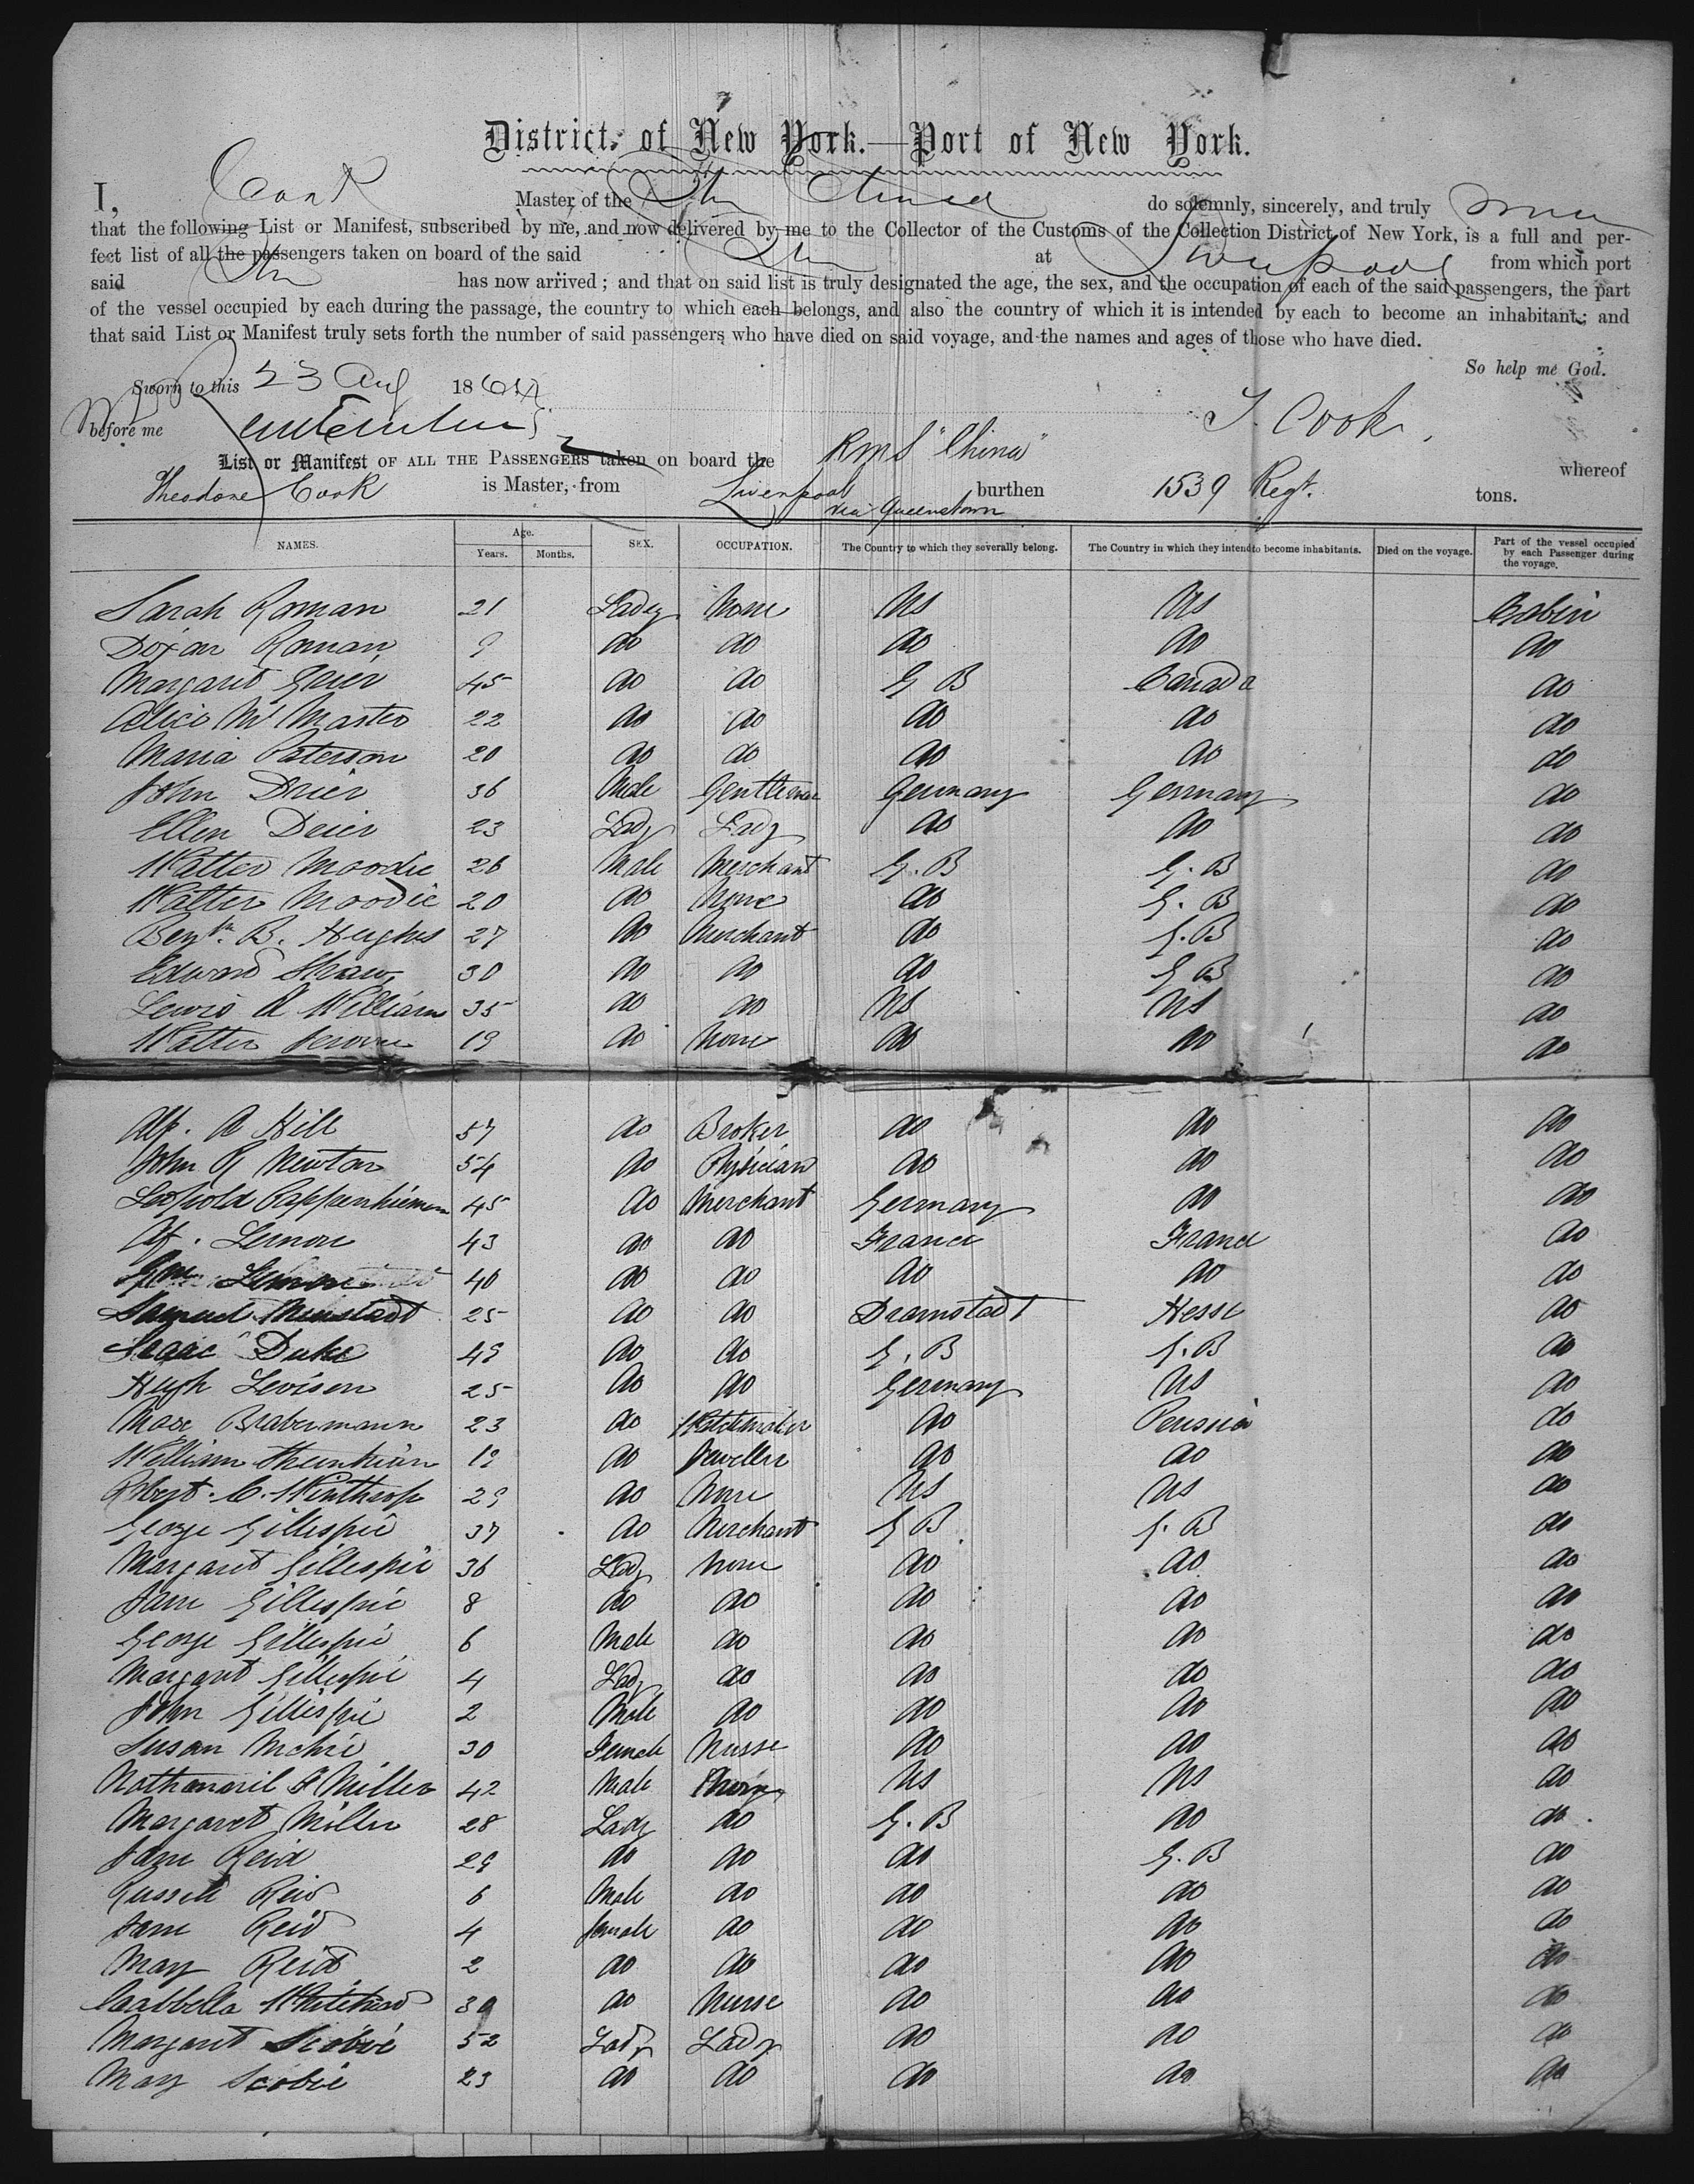 District of New York.—Port of New York.
I, Cook Master of the Str China do solemnly, sincerely, and truly swear
that the following List or Manifest, subscribed by me, and now delivered by me to the Collector of the Customs of the Collection District of New York, is a full and per-
fect list of all the passengers taken on board of the said Str at Liverpool from which port
said Str has now arrived; and that on said list is truly designated the age, the sex, and the occupation of each of the said passengers, the part
of the vessel occupied by each during the passage, the country to which each belongs, and also the country of which it is intended by each to become an inhabitant; and
that said List or Manifest truly sets forth the number of said passengers who have died on said voyage, and the names and ages of those who have died.
So help me God.
Sworn to this 23 Aug 186
before me T. Cook.
List or Manifest OF ALL THE PASSENGERS taken on board the RMS "China" whereof
Theodore Cook is Master, from Liverpool via Queenstown burthen 1539 Regt. tons.
NAMES. Age. Years. Months. SEX. OCCUPATION. The Country to which they severally belong. The Country in which they intend to become inhabitants. Died on the voyage. Part of the vessel occupied by each Passenger during the voyage.
Sarah Roman 21 Lady None US US Cabin
Roman 9 do do do do do
Margaret Grier 45 do do G B Canada do
Alice Mc Master 22 do do do do do
Maria Paterson 20 do do do do do
John Drier 36 Male Gentleman Germany Germany do
Ellen Drier 23 Lady Lady do do do
Walter Moodie 26 Male Merchant G. B G. B do
Walter Moodie 20 do None do G. B do
Benjn. B. Hughes 27 do Merchant do G. B do
Edward Shaw 30 do do do G B do
Lewis A Williams 35 do do US US do
Walter Jerome 19 do None do do do
Alf. A Hill 57 do Broker do do do
John R Newton 54 do Physician do do do
Leopold Pappenhiemen 45 do Merchant Germany do do
Af. Lemon 43 do do France France do
40 do do do do do
Samuel 25 do do Dramstadt Hesse do
Isaac Duke 49 do do G. B G. B do
Hugh Levison 25 do do Germany US do
Max Brabermann 23 do Watchmaker do Perusia do
William 19 do Jeweller do do do
Robert. C. Winthrop 29 do None US US do
George Gillespie 37 do Merchant G B G. B do
Margaret Gillespie 36 Lady None do do do
Jane Gillespie 8 do do do do do
George Gillespie 6 Male do do do do
Margaret Gillespie 4 Lady do do do do
John Gillespie 2 Male do do do do
Susan McKie 30 Female Nurse do do do
Nathanail Miller 42 Male US US do
Margaret Miller 28 Lady do G. B do do
Jane Reid 29 do do do G. B do
Russell Reid 6 Male do do do do
Jane Reid 4 female do do do do
May Reid 2 do do do do do
Isabbella Whitehead 30 do Nurse do do do
Margaret Scobie 52 Lady Lady do do do
May Scobie 23 do do do do do